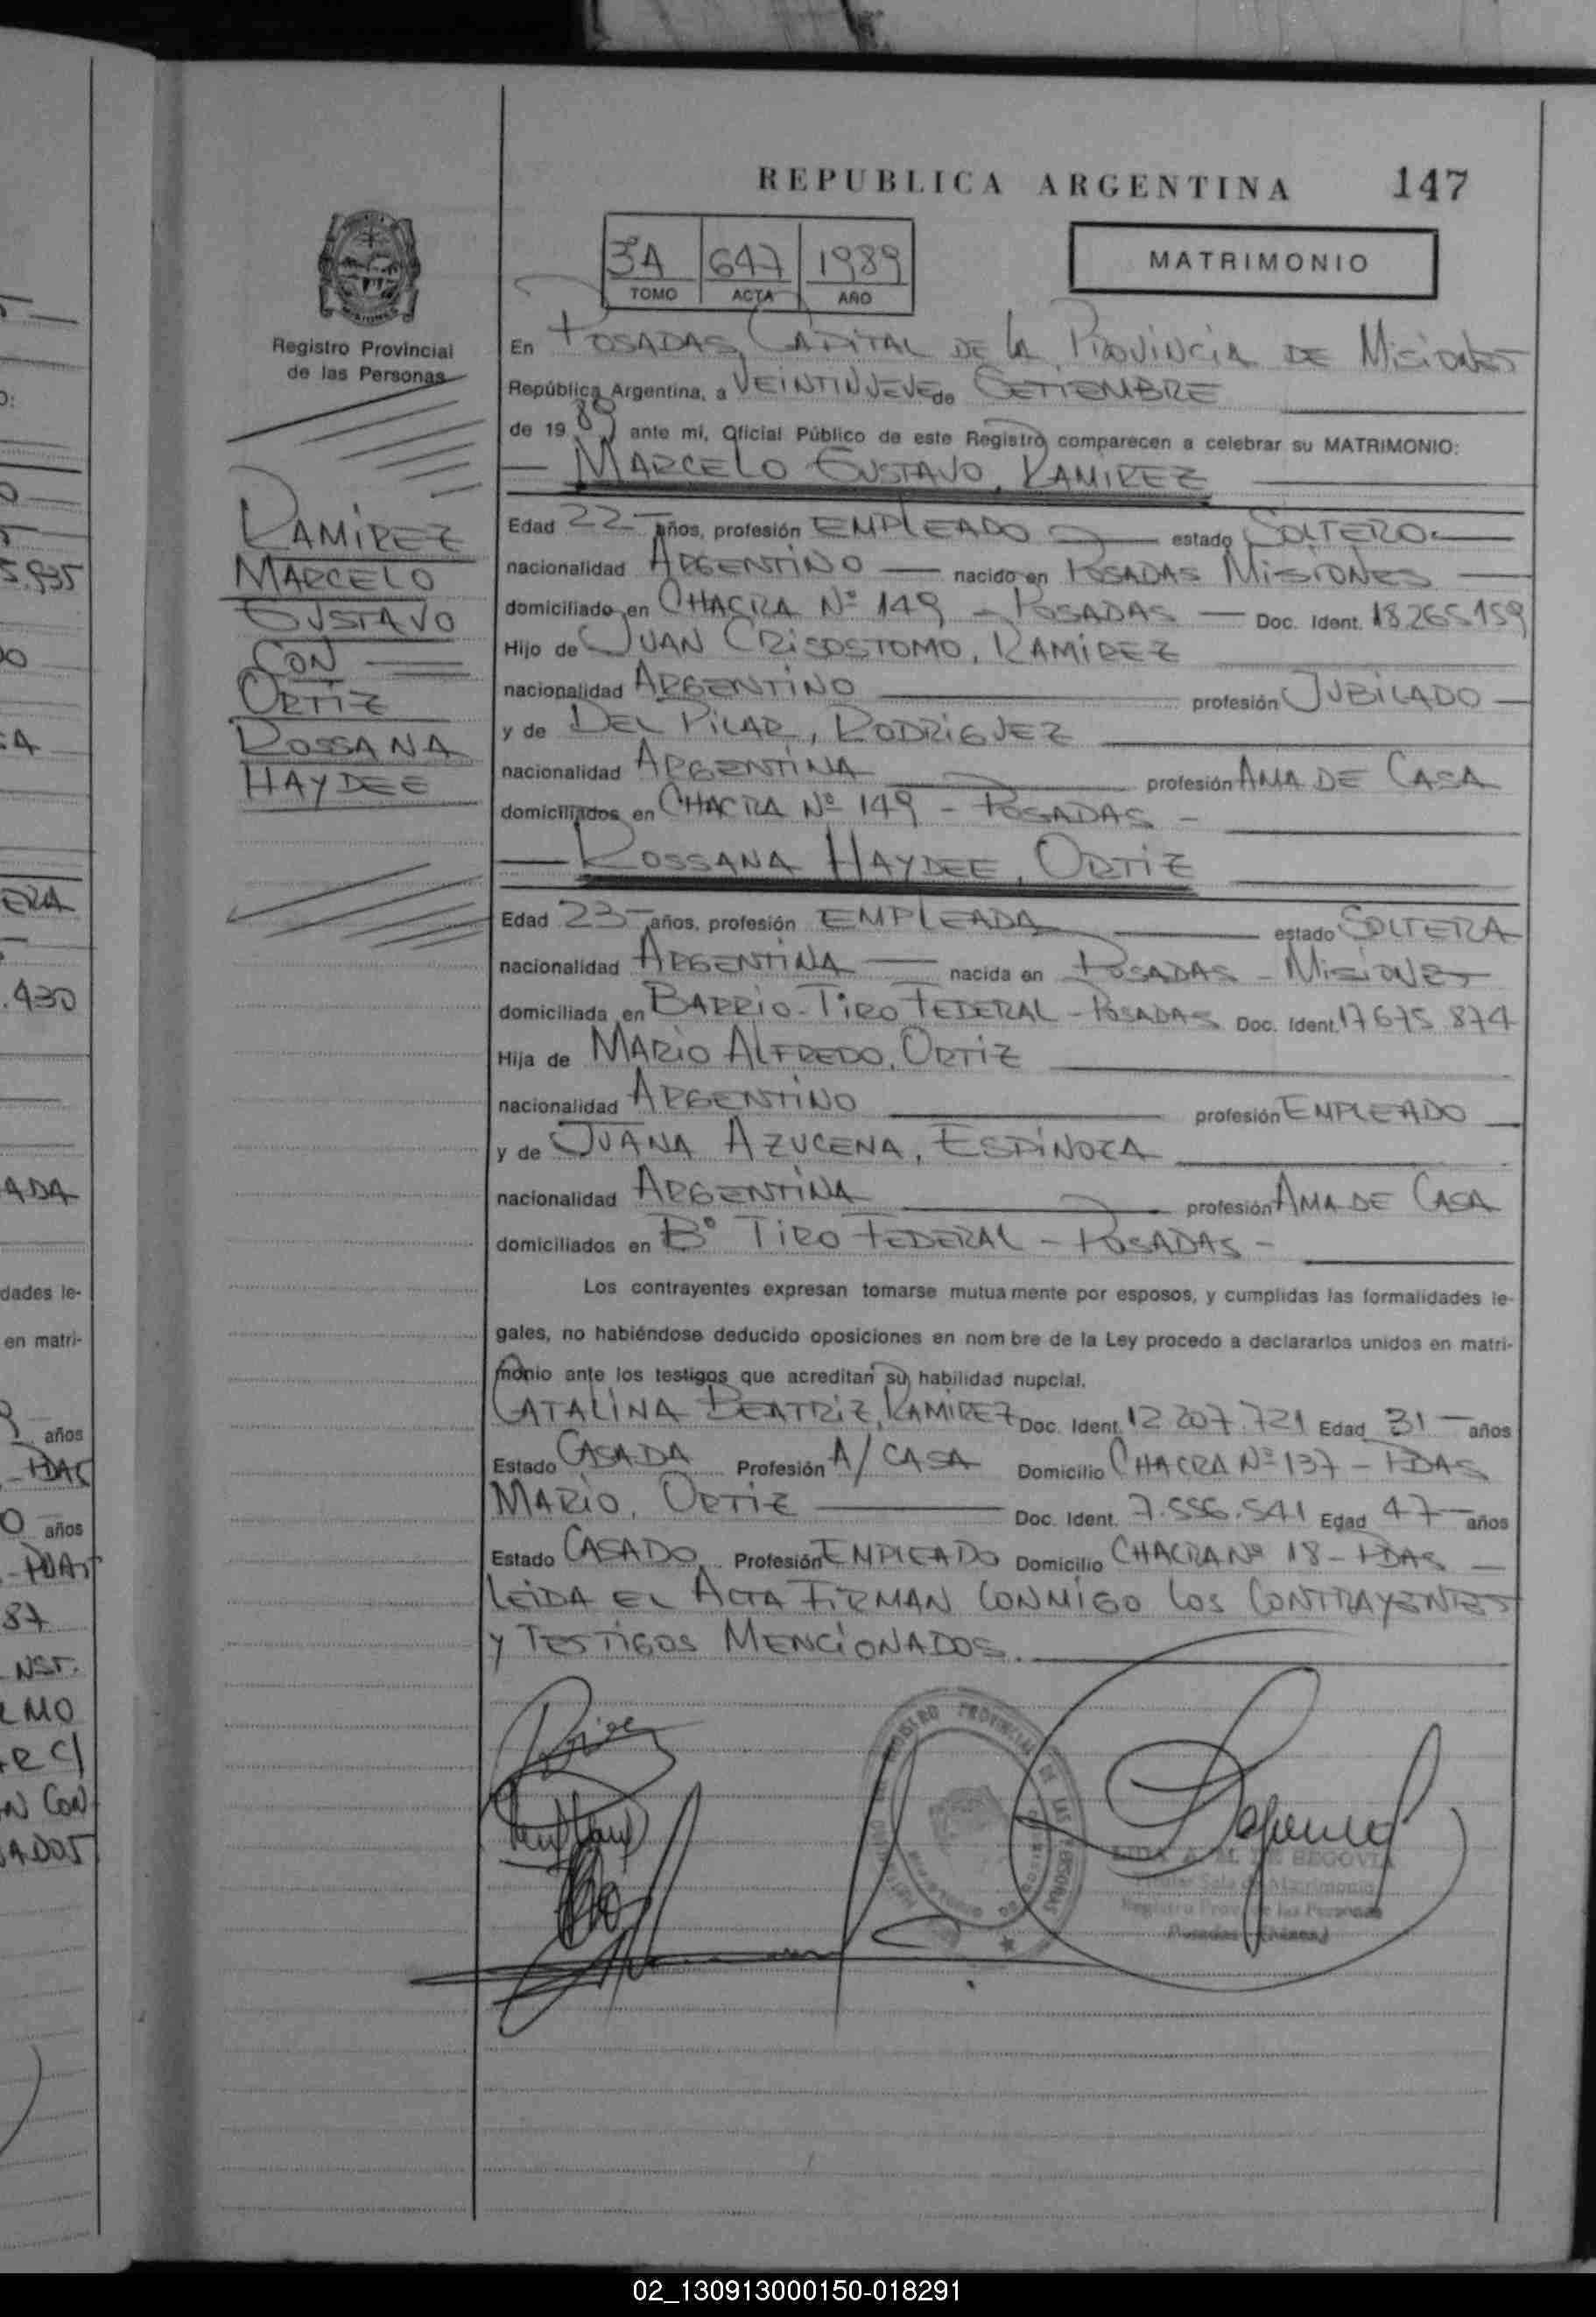 REPUBLICA ARGENTINA 147
3ºA 647 1989
TOMO ACTA AÑO
MATRIMONIO
Registro Provincial
de las Personas
En POSADAS, CAPITAL DE LA PROVINCIA DE MISIONES
República Argentina, a VEINTINUEVE de SETIEMBRE
de 1989 ante mí, Oficial Público de este Registro comparecen a celebrar su MATRIMONIO:
MARCELO GUSTAVO, RAMIREZ
RAMIREZ
MARCELO
GUSTAVO
CON
ORTIZ
ROSSANA
HAYDEE
Edad 22 años, profesión EMPLEADO estado SOLTERO
nacionalidad ARGENTINO nacido en POSADAS MISIONES
domiciliado en CHACRA Nº 149 - POSADAS Doc. Ident. 18.265.159
Hijo de JUAN CRISOSTOMO, RAMIREZ
nacionalidad ARGENTINO profesión JUBILADO
y de DEL PILAR, RODRIGUEZ
nacionalidad ARGENTINA profesión AMA DE CASA
domiciliados en CHACRA Nº 149 - POSADAS -
ROSSANA HAYDEE, ORTIZ
Edad 23 años, profesión EMPLEADA estado SOLTERA
nacionalidad ARGENTINA nacida en POSADAS - MISIONES
domiciliada en BARRIO - TIRO FEDERAL - POSADAS Doc. Ident. 17.675.874
Hija de MARIO ALFREDO, ORTIZ
nacionalidad ARGENTINO profesión EMPLEADO
y de JUANA AZUCENA, ESPINOZA
nacionalidad ARGENTINA profesión AMA DE CASA
domiciliados en Bº TIRO FEDERAL - POSADAS -
Los contrayentes expresan tomarse mutua mente por esposos, y cumplidas las formalidades le-
gales, no habiéndose deducido oposiciones en nom bre de la Ley procedo a declararlos unidos en matri-
monio ante los testigos que acreditan su habilidad nupcial.
CATALINA BEATRIZ, RAMIREZ Doc. Ident. 12.207.721 Edad 31 años
Estado CASADA Profesión A/CASA Domicilio CHACRA Nº 137 - PDAS
MARIO, ORTIZ Doc. Ident. 7.556.541 Edad 47 años
Estado CASADO Profesión EMPLEADO Domicilio CHACRA Nº 18 - PDAS
LEIDA EL ACTA FIRMAN CONMIGO LOS CONTRAYENTES
Y TESTIGOS MENCIONADOS.
REGISTRO PROVINCIAL DE LAS PERSONAS
DE SEGOVIA
Titular Sala de Matrimonio
Registro Prov. de las Personas
Posadas
5.935
ERA
.430
ADA
dades le-
en matri-
años
- PDAS
0 años
- PDAS
87
NST.
RMO
R C/
N CON
ADOS
02_130913000150-018291